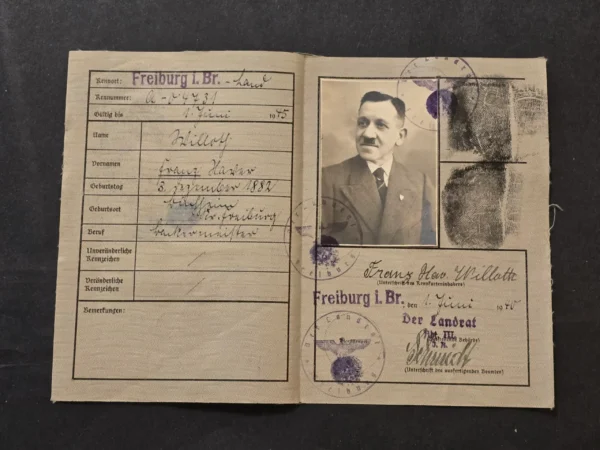 Kennort: Freiburg i. Br. - Land
Kennnummer: A-04731
Gültig bis 1. Juni 1945
Name Willoth
Vornamen Franz Xaver
Geburtstag 3. Dezember 1882
Geburtsort Buchheim
Kr. Freiburg
Beruf Bäckermeister
Unveränderliche
Kennzeichen
Veränderliche
Kennzeichen
Bemerkungen:
Franz Xav. Willoth
(Unterschrift des Kennkarteninhabers)
Freiburg i. Br., den 1. Juni 1940
Der Landrat
Abt. III.
J. A.
(Unterschrift des ausfertigenden Beamten)